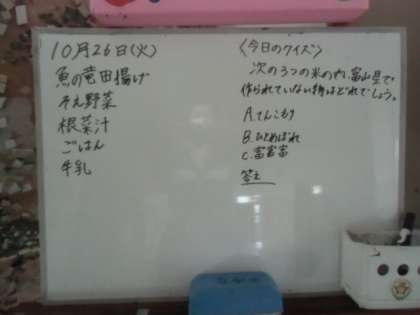 10月26日(火)
魚の竜田揚げ
そえ野菜
根菜汁
ごはん
牛乳
〈今日のクイズ〉
次の3つの米の内、富山県で
作られていない物はどれでしょう。
A.てんこもり
B.ひとめぼれ
C.富富富
答え